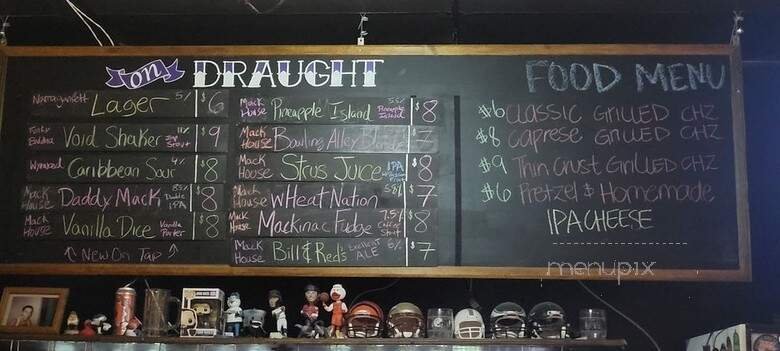 on DRAUGHT
Narragansett Lager 5% $6
Void Shaker $9
Caribbean Sour 4% $8
Mack House Daddy Mack 8.5% Double IPA $8
Mack House Vanilla Dice Vanilla Porter $8
↑ New On Tap ↑
Mack House Pineapple Island 5.5% Pineapple Island $8
Mack House Bowling Alley Blonde $7
Mack House Strus Juice IPA $8
Mack House wHeat Nation 5.8% $7
Mack House Mackinac Fudge 7.5% Coffee Stout $8
Mack House Bill & Red's Excellent ALE 6% $7
FOOD MENU
$6 Classic GRILLED CHZ
$8 Caprese GRILLED CHZ
$9 Thin Crust GRILLED CHZ
$6 Pretzel & Homemade
IPA CHEESE
menupix